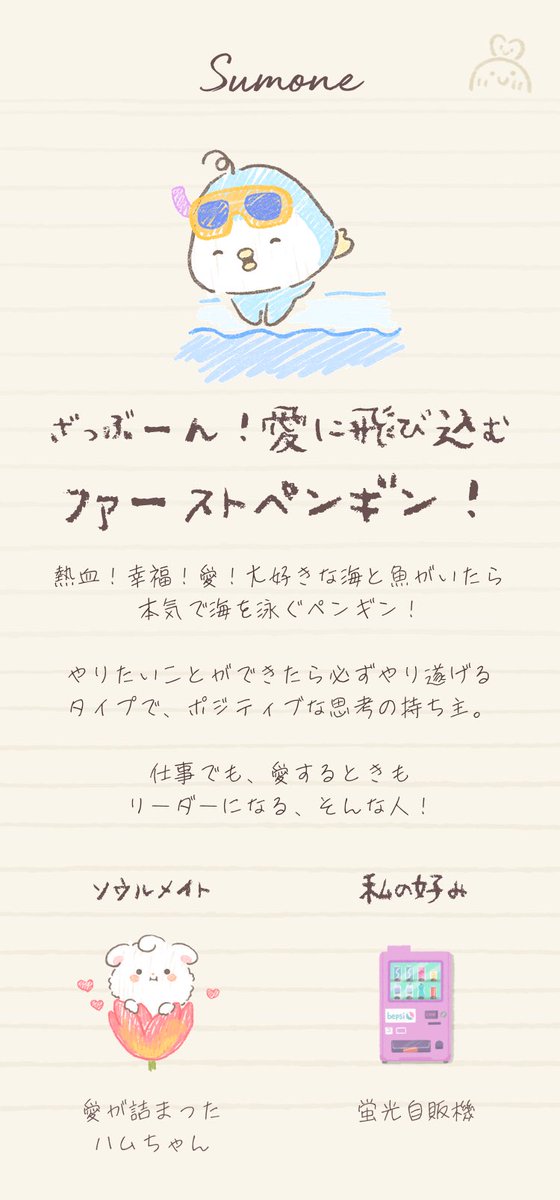 Sumone
ざっぶーん！愛に飛び込む
ファーストペンギン！
熱血！幸福！愛！大好きな海と魚がいたら
本気で海を泳ぐペンギン！
やりたいことができたら必ずやり遂げる
タイプで、ポジティブな思考の持ち主。
仕事でも、愛するときも
リーダーになる、そんな人！
ソウルメイト
私の好み
bepsi
愛が詰まった
ハムちゃん
蛍光自販機